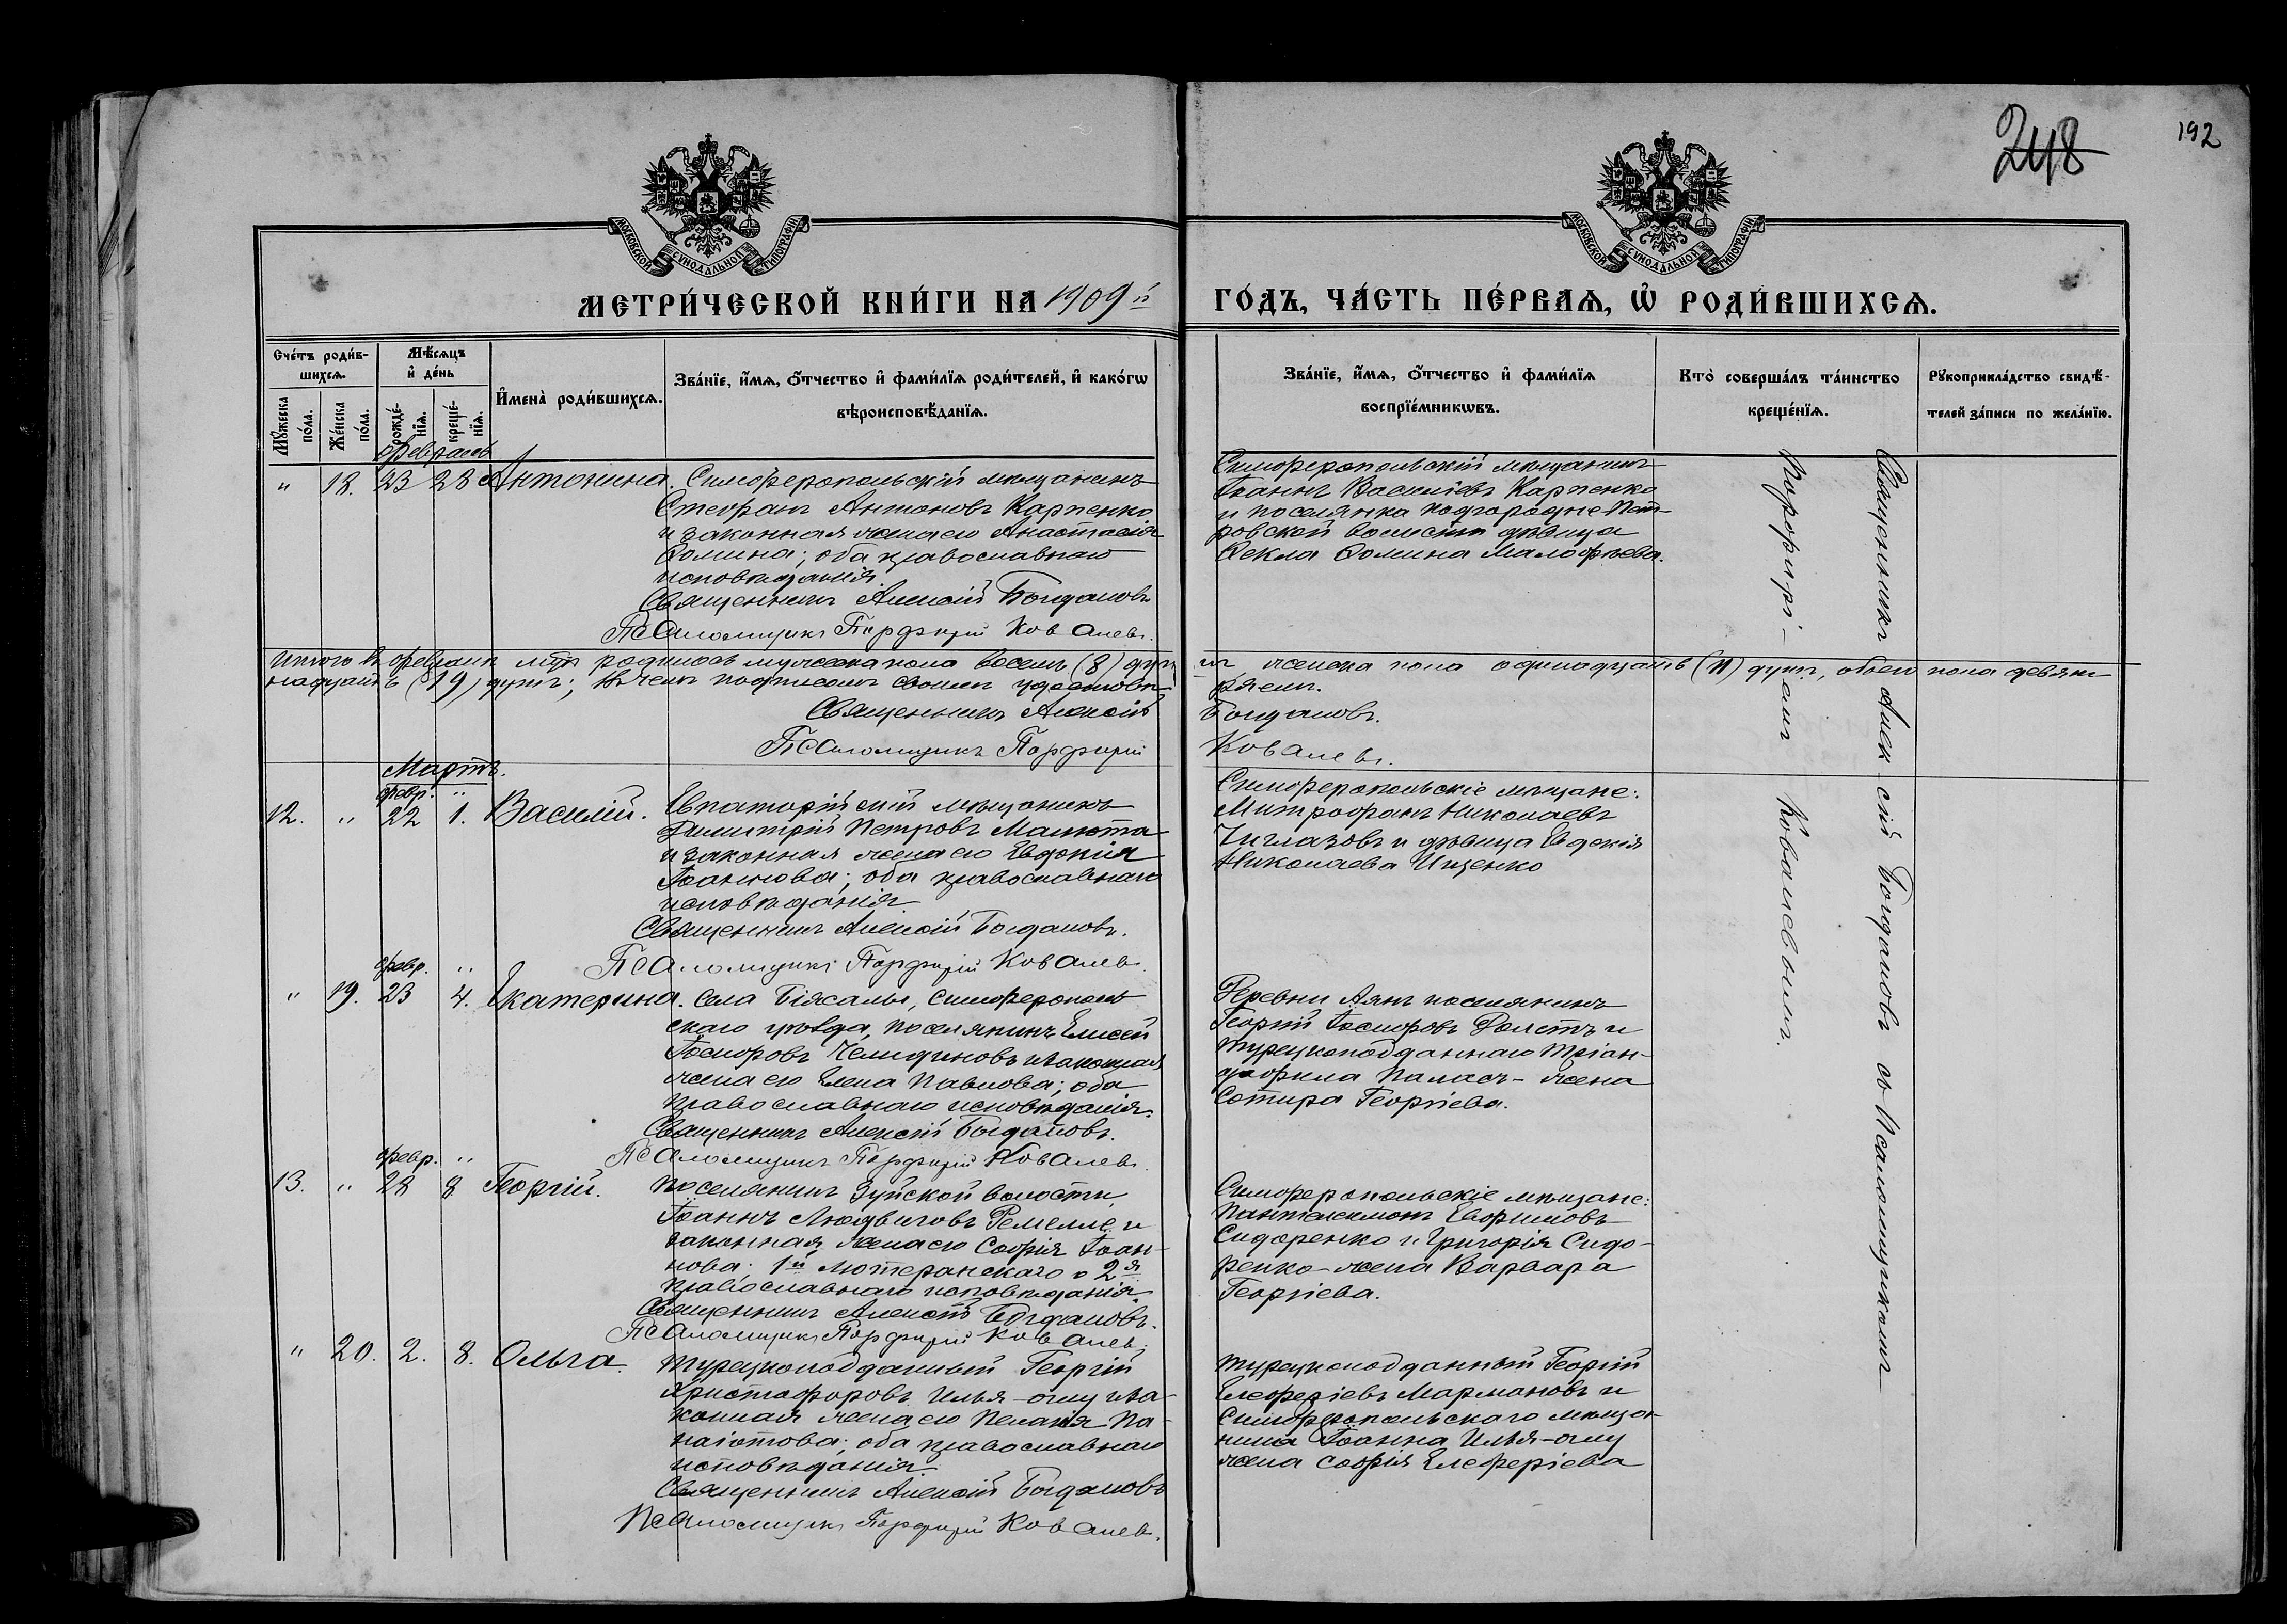 248
192
МОСКОВСКОЙ СѴНОДАЛЬНОЙ ТИПОГРАФІИ
МОСКОВСКОЙ СѴНОДАЛЬНОЙ ТИПОГРАФІИ
МЕТРИ́ЧЕСКОЙ КНИ́ГИ НА 1909й
ГО́ДЪ, ЧА́СТЬ ПЕ́РВАѦ, Ѡ҆ РОДИ́ВШИХСѦ.
Сче́тъ роди́в-
шихсѧ.
Мꙋ́жеска
по́ла.
Же́нска
по́ла.
Мѣ́сѧцъ
и҆ де́нь
рожде́-
нїѧ.
креще́-
нїѧ.
И҆мена̀ роди́вшихсѧ.
Зва́нїе, и҆́мѧ, ѻ҆́тчество и҆ фами́лїѧ роди́телей, и҆ како́гѡ
вѣроисповѣ́данїѧ.
Зва́нїе, и҆́мѧ, ѻ҆́тчество и҆ фами́лїѧ
воспрїе́мникѡвъ.
Кто̀ соверша́лъ та́инство
креще́нїѧ.
Рꙋкоприкла́дство свидѣ́-
телей за́писи по жела́нїю.
февраль
" 18. 23 28 Антонина. Симферопольскій мѣщанинъ
Стефанъ Антоновъ Карпенко
и законная жена его Анастасія
Ѳомина; оба православнаго
исповѣданія.
Священникъ Алексій Богдановъ
Псаломщикъ Порфирій Ковалевъ.
Симферопольскій мѣщанинъ
Іоаннъ Василіевъ Карпенко
и поселянка подгородне-Пет-
ровской волости дѣвица
Ѳекла Ѳомина Малофѣева.
Итого въ февралѣ м‑цѣ родилось мужеска пола восемь (8) душ
ъ женска пола одинадцать (11) душъ, обоего пола девят
надцать (19) душъ; въ чемъ подписомъ своимъ удостовѣ
ряемъ.
Священникъ Алексій
Богдановъ.
Псаломщикъ Порфирій
Ковалевъ.
Мартъ.
февр. "
12. " 22 1. Василій. Евпаторійскій мѣщанинъ
Димитрій Петровъ Малюта
и законная жена его Евдокія
Іоаннова; оба православнаго
исповѣданія
Священникъ Алексій Богдановъ.
Псаломщикъ Порфирій Ковалевъ.
Симферопольскіе мѣщане:
Митрофанъ Николаевъ
Чиглазовъ и дѣвица Евдокія
Николаева Ищенко
февр. "
" 19. 23 4. Екатерина. Села Біясалы, симферополь
скаго уѣзда, поселянинъ Елисей
Іосифовъ Челидиновъ и законная
жена его Елена Павлова; оба
православнаго исповѣданія.
Священникъ Алексій Богдановъ.
Псаломщикъ Порфирій Ковалевъ.
Деревни Аянъ поселянинъ
Георгій Іосифовъ и
турецкоподданнаго Тріан-
дофила Паласъ - жена
Сотира Георгіева.
февр. "
13. " 28 8 Георгій. Поселянинъ Зуйской волости,
Іоаннъ Людвиговъ Ремеллѐ и
законная жена его Софія Іоан-
нова: 1й лютеранскаго и 2я
православнаго исповѣданія.
Священникъ Алексій Богдановъ.
Псаломщикъ Порфирій Ковалевъ.
Симферопольскіе мѣщане:
Пантелеимонъ Евфимовъ
Сидоренко и Григорія Сидо-
ренко - жена Варвара
Георгіева.
" 20. 2. 8. Ольга. Турецкоподданный Георгій
Христофоровъ Илья-оглу и за-
конная жена его Пелагія Па-
наіотова; оба православнаго
исповѣданія.
Священникъ Алексій Богдановъ
Псаломщикъ Порфирій Ковалевъ.
Турецкоподданный Георгій
Елеферіевъ Мармановъ и
Симферопольскаго мѣщан-
нина Іоанна Илья-оглу
жена Софія Елеферіева
Священникъ Алексій Богдановъ съ Псаломщикомъ
Порфиріемъ Ковалевымъ.